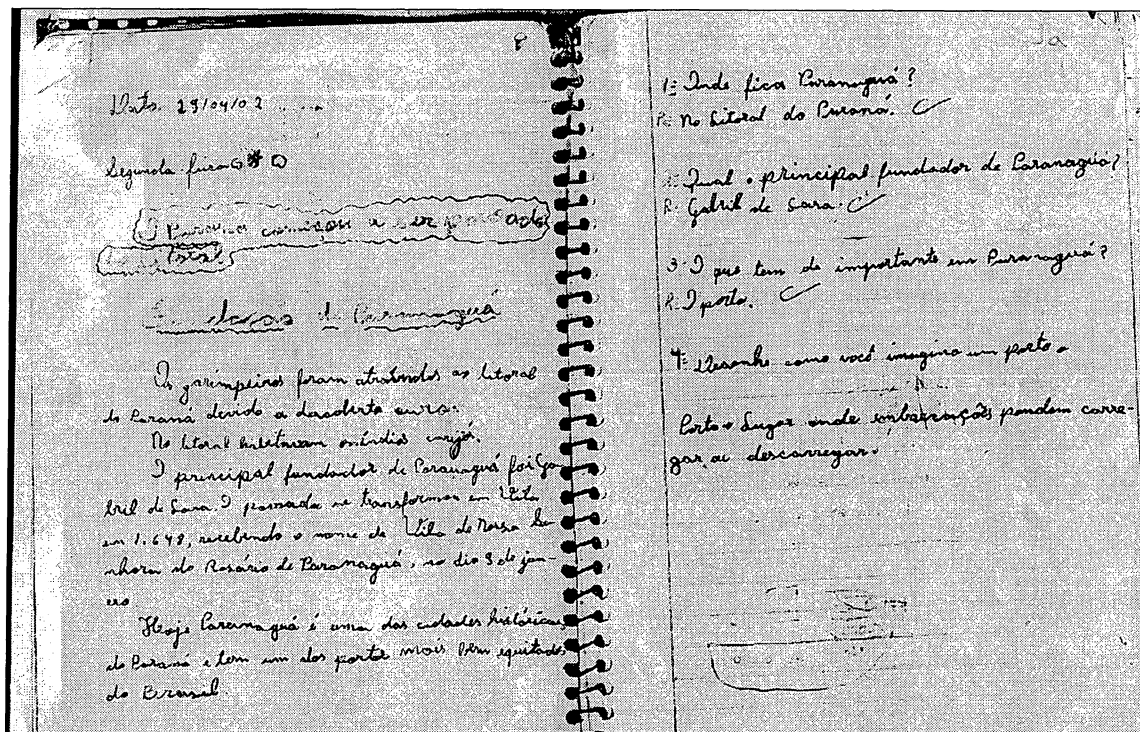 Data 29/04/02
Segunda feira
O Paraná começou a ser povoado
de Paranaguá
Os garimpeiros foram atraindos ao litoral
do Paraná devido a descoberta ouro.
No litoral habitavam os índios carijó.
O principal fundador de Paranaguá foi Ga
bril de Sara. O povoada se transformou em Vila
em 1.648, recebendo o nome de Vila de Nossa Se
nhora do Rosário de Paranaguá, no dia 9 de jan-
ero
Hoje Paranaguá é uma das cidades históricas
do Paraná e tem um dos porto mais bem equitados
do Brasil
1- Onde fica Paranaguá?
R- No Litoral do Paraná.
Qual o principal fundador de Paranaguá?
R- Gabril de Sara.
3- O que tem de importante em Paranaguá?
R- O porto.
4- Desenhe como você imagina um porto.
Porto = Lugar onde embarcações pondem carre-
gar ou descarregar.